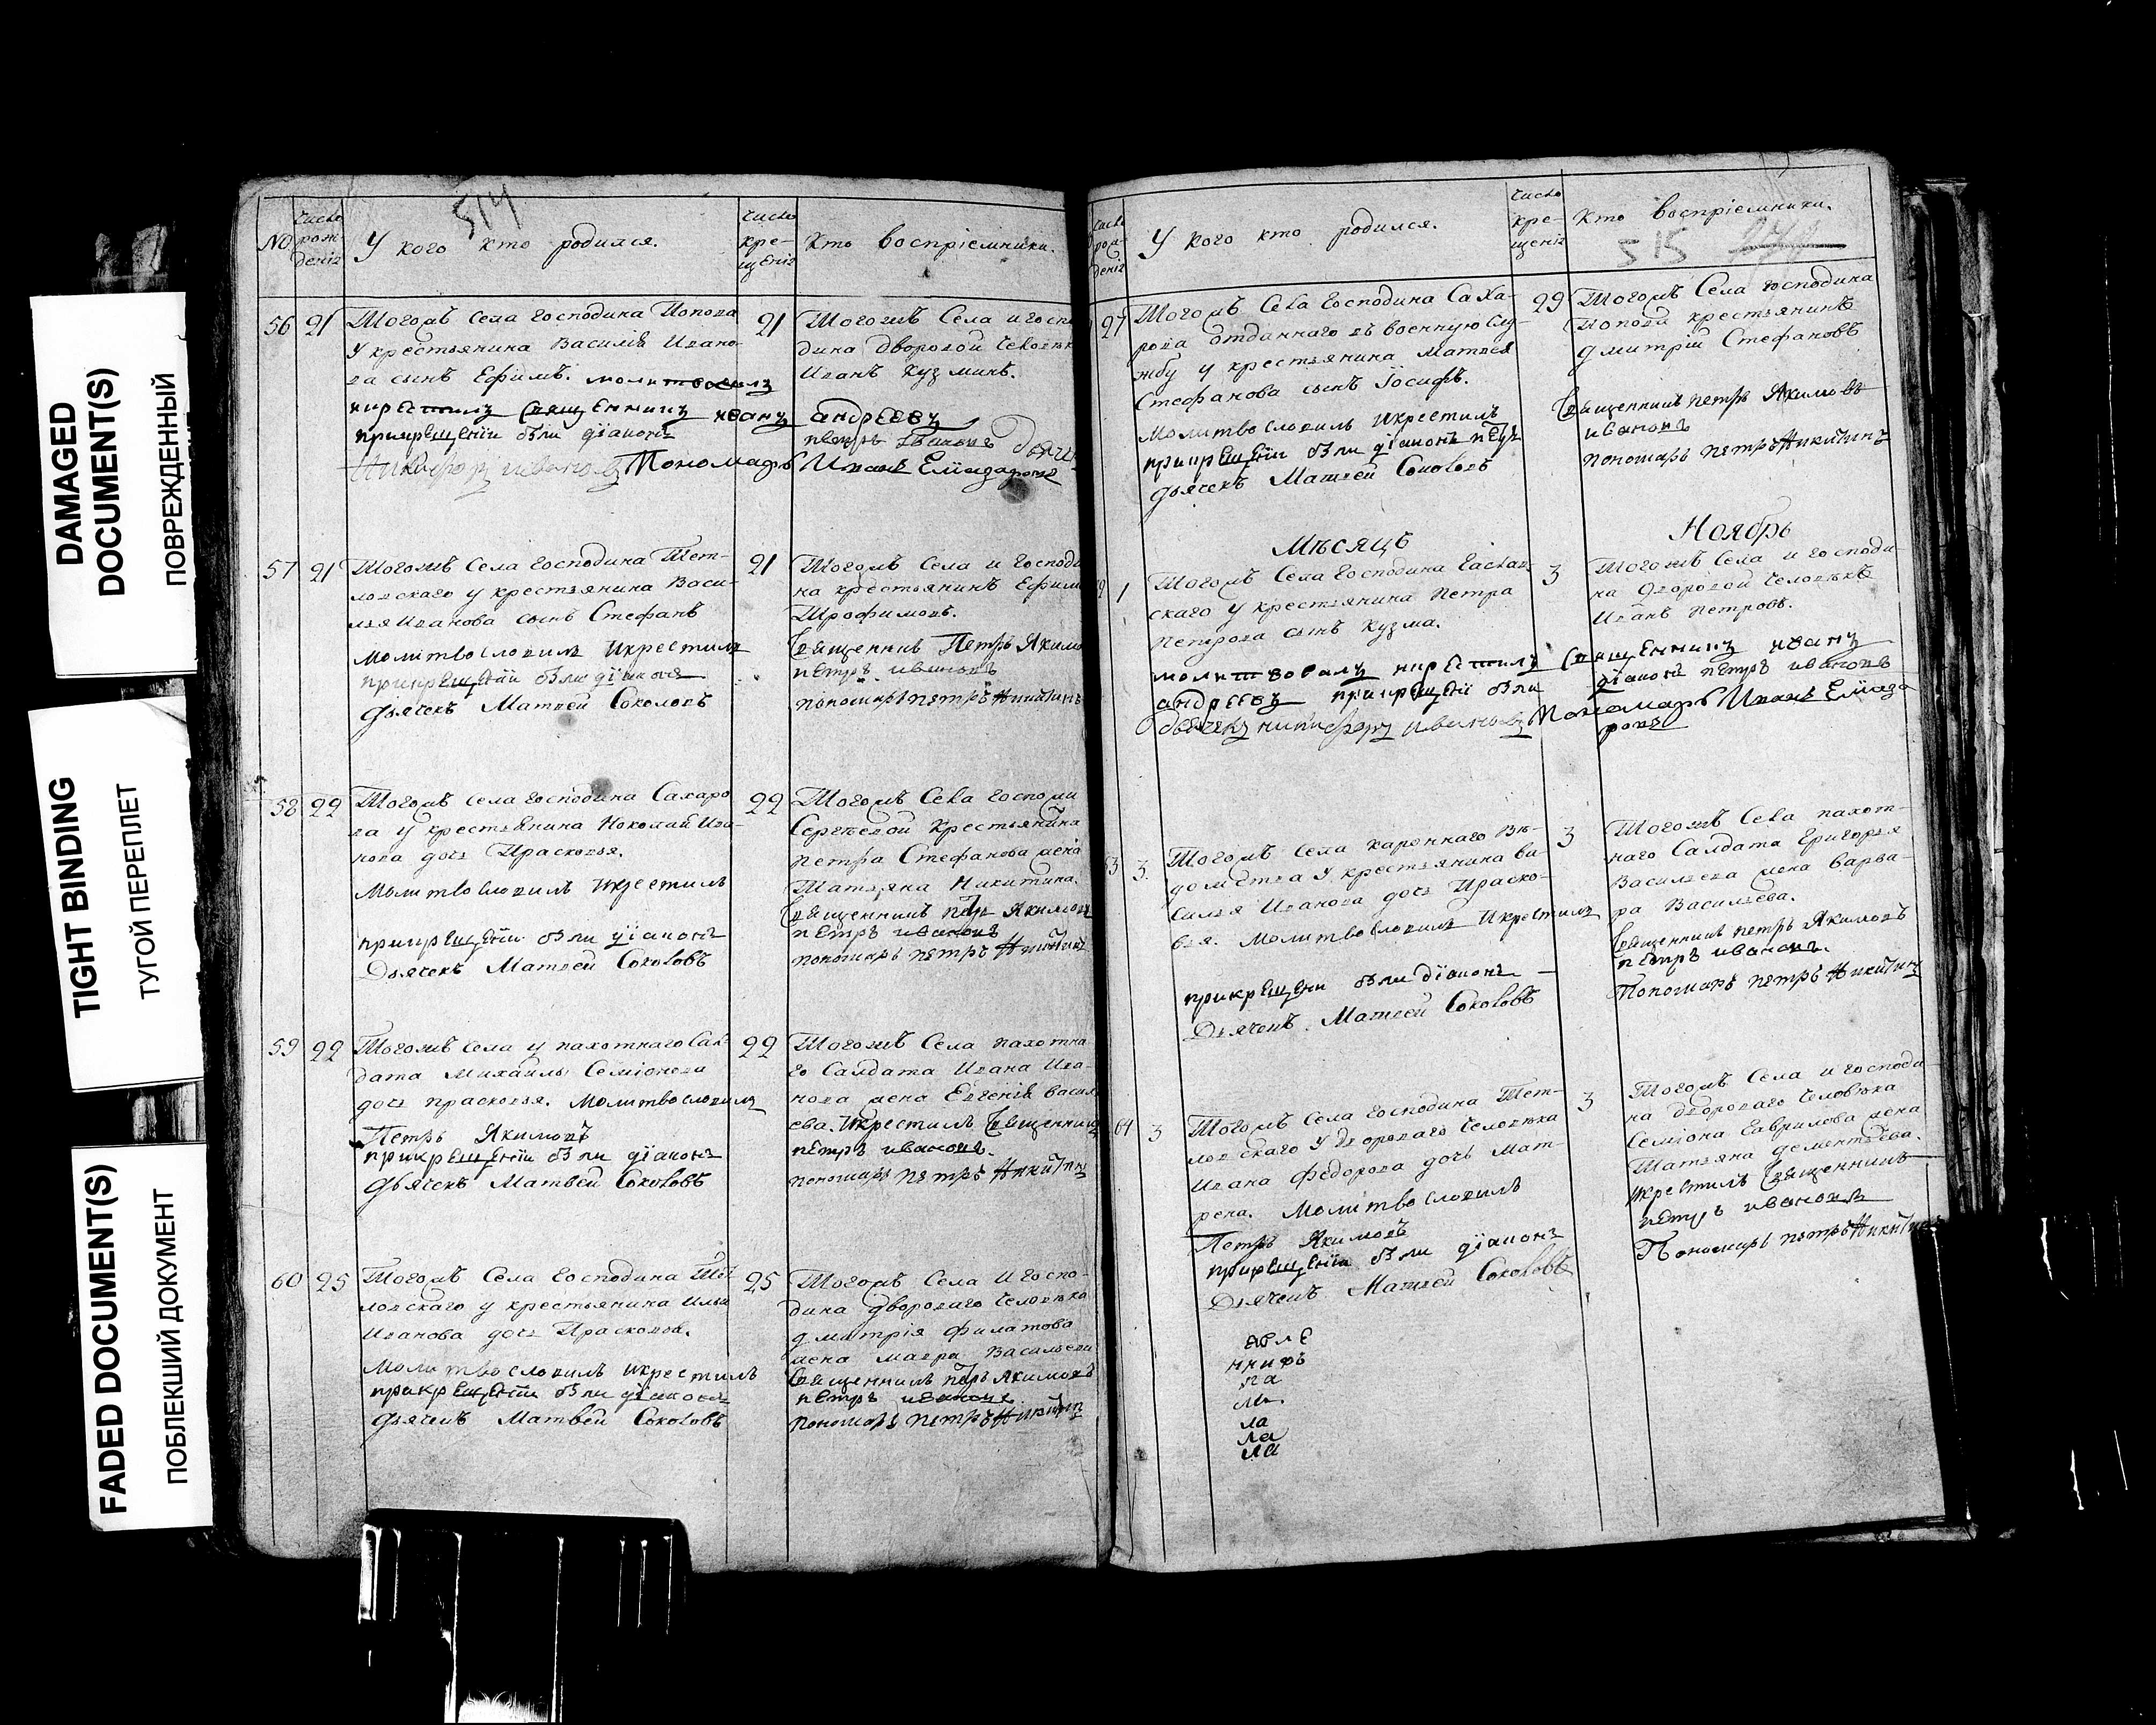 DAMAGED
DOCUMENT(S)
ПОВРЕЖДЕННЫЙ
TIGHT BINDING
ТУГОЙ ПЕРЕПЛЕТ
FADED DOCUMENT(S)
ПОБЛЕКШИЙ ДОКУМЕНТ
514
№
Число рождения
У кого кто родился.
Число крещения
Кто воспріемники.
56 21
Тогожъ Села Господина Попова
У крестьянина Василія Ивано-
ва сынъ Ефимъ. молитвовилъ
икрестилъ Священникъ иванъ андреевъ
прикрещеніи были діаконъ петръ ивановъ
Никифоръ ивановъ Пономарь Иванъ Елиазаровъ
21
Тогожъ Села и госпо
дина дворовой человѣкъ
Иванъ Кузминъ.
57 21
Тогожъ Села Господина Тет-
ловскаго у крестьянина Васи-
лья Иванова сынъ Стефанъ
Молитвословилъ Икрестилъ
прикрещеніи были діаконъ
Дьячекъ Матвей Соколовъ
21
Тогожъ Села и Господи
на крестьянинъ Ефимъ
Трофимовъ.
Священникъ Петръ Якимо
петръ ивановъ
пономарь петръ Никитинъ
58 22
Тогожъ Села Господина Сахаро
ва у крестьянина Николай Ива-
нова дочь Прасковья.
Молитвословилъ Икрестилъ
прикрещеніи были діаконъ
Дьячекъ Матвей Соколовъ
22
Тогожъ Села Госпожи
Сергеевой Крестьянина
Петра Стефанова жена
Татьяна Никитина.
Священникъ петръ Якимовъ
петръ ивановъ
пономарь петръ Никитинъ
59 22
Тогожъ Села у пахотнаго Сал-
дата Михаилы Семіонова
дочь прасковья. Молитвословилъ
Петръ Якимовъ
прикрещеніи были діаконъ
Дьячекъ Матвей Соколовъ
22
Тогожъ Села пахотна
го Салдата Ивана Ива-
нова жена Евгенія васил
ева. Икрестилъ Священникъ
петръ ивановъ.
пономарь петръ Никитинъ
60 25
Тогожъ Села Господина Тет
ловскаго у крестьянина Ильи
Иванова дочь Прасковья.
Молитвословилъ икрестилъ
прикрещеніи были діаконъ
Дьячекъ Матвей Соколовъ
25
Тогожъ Села И Госпо-
дина дворового человѣка
дмитрія филатова
жена мавра Васильева
Священникъ петръ Якимовъ
петръ ивановъ
пономарь петръ Никитинъ
Число рождения
У кого кто родился.
Число крещения
Кто воспріемники.
515
27
Тогожъ Села Господина Саха-
рова отданнаго въ военную Слу-
жбу у крестьянина Матвея
Стефанова сынъ Іосифъ.
Молитвословилъ Икрестилъ
прикрещеніи были діаконъ петръ
Дьячекъ Матвей Соколовъ
29
Тогожъ Села господина
Попова крестьянинъ
Дмитрій Стефановъ
Священникъ петръ Якимовъ
ивановъ
пономарь петръ Никитинъ
Мѣсяцъ Ноябрь
1
Тогожъ Села Господина
скаго у крестьянина Петра
Петрова сынъ Кузма.
молитвовалъ икрестилъ Священникъ иванъ
андреевъ прикрещеніи были діаконъ петръ ивановъ
дьячекъ никифоръ ивановъ Пономарь Иванъ Елиаза
ровъ
3
Тогожъ Села и господи-
на дворовой человѣкъ
Иванъ Петровъ.
63 3.
Тогожъ Села каронного Вѣ-
домства У крестьянина ва-
силья Иванова дочь Праско-
вья. Молитвословилъ Икрестилъ
прикрещени были діаконъ
Дьячекъ. Матвей Соколовъ
3
Тогожъ Села пахот-
наго Салдата Григорья
Васильева жена варва-
ра Васильева.
Священникъ петръ Якимовъ
петръ ивановъ.
Пономарь петръ Никитинъ
64 3
Тогожъ Села Господина Тет-
ловскаго У дворового человѣка
Ивана Федорова дочь Мат-
рена. Молитвословилъ
Петръ Якимовъ
прикрещеніи были діаконъ
Дьячекъ Матвей Соколовъ
3
Тогожъ Села и господи
на дворового человѣка
Семіона Гаврилова жена
Татьяна дементьева.
Икрестилъ Священникъ
петръ ивановъ
Пономарь петръ Никитинъ
ла
ла
ла